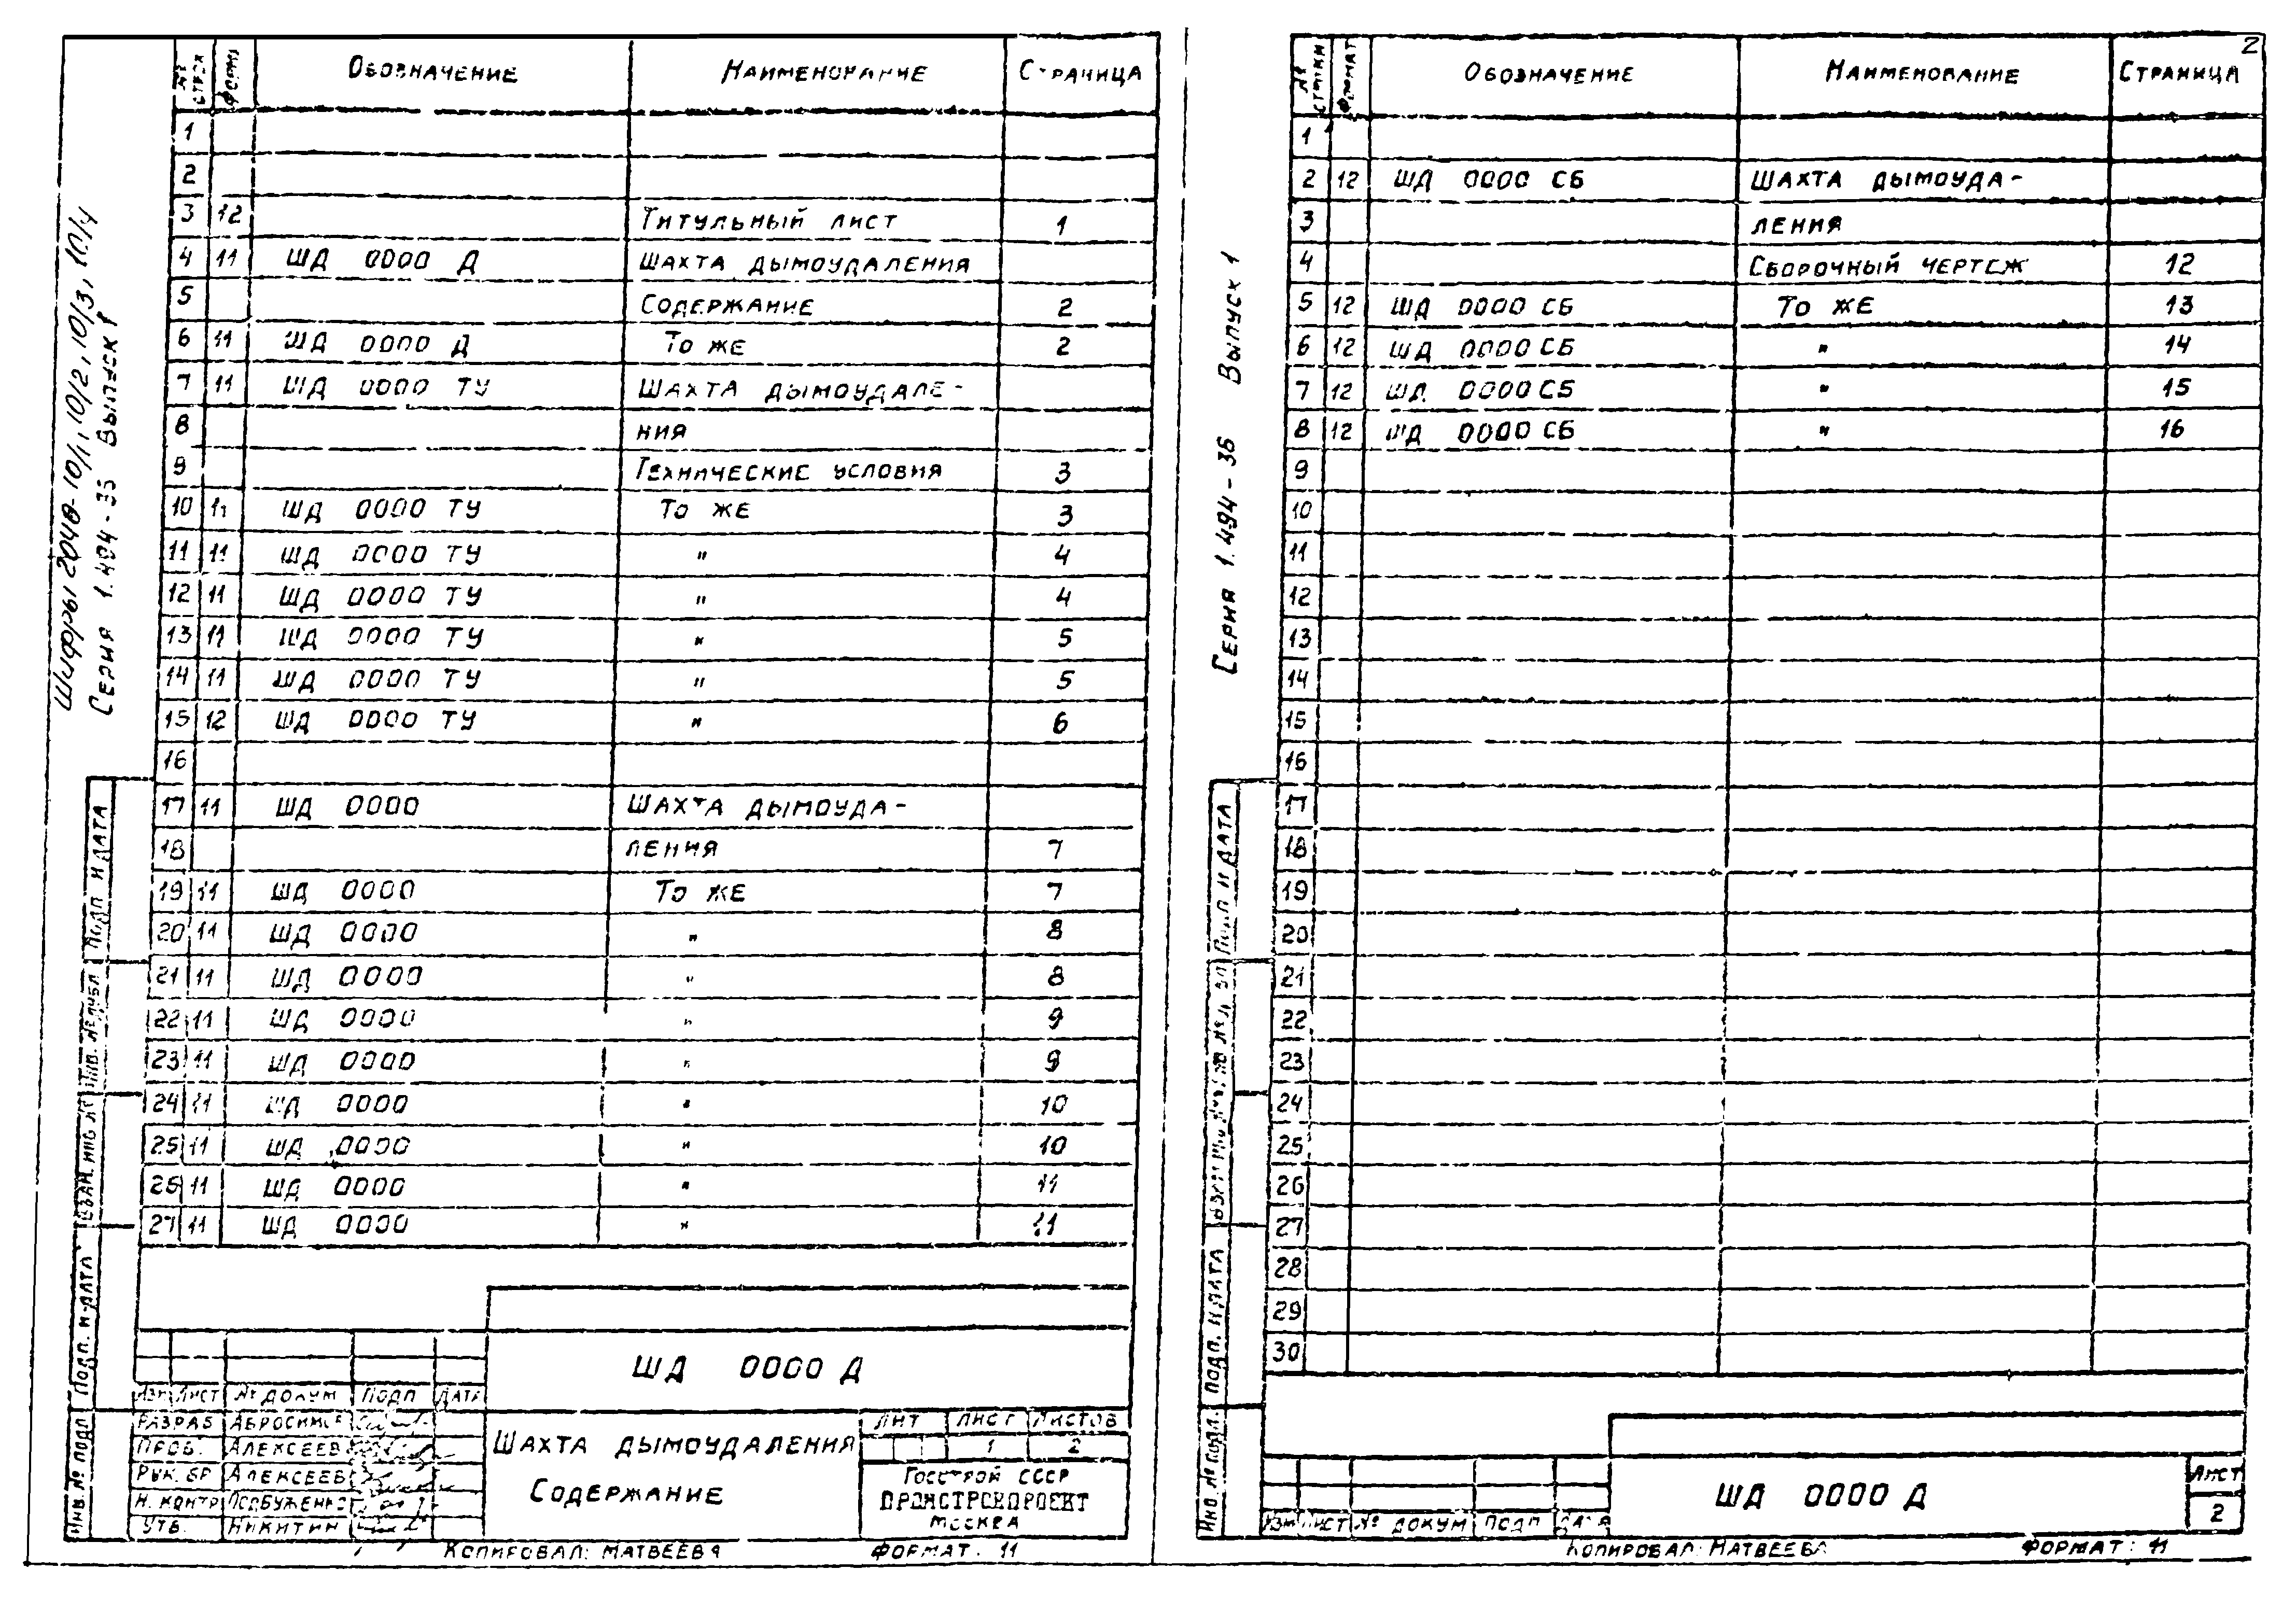 Шифры 2048-10/1, 10/2, 10/3, 10/4
Серия 1.494-35 Выпуск 1
№ строк Форм. Обозначение Наименование Страница
1
2
3 12 Титульный лист 1
4 11 ШД 0000 Д Шахта дымоудаления
5 Содержание 2
6 11 ШД 0000 Д То же 2
7 11 ШД 0000 ТУ Шахта дымоудале-
8 ния
9 Технические условия 3
10 11 ШД 0000 ТУ То же 3
11 11 ШД 0000 ТУ " 4
12 11 ШД 0000 ТУ " 4
13 11 ШД 0000 ТУ " 5
14 11 ШД 0000 ТУ " 5
15 12 ШД 0000 ТУ " 6
16
17 11 ШД 0000 Шахта дымоуда-
18 ления 7
19 11 ШД 0000 То же 7
20 11 ШД 0000 " 8
21 11 ШД 0000 " 8
22 11 ШД 0000 " 9
23 11 ШД 0000 " 9
24 11 ШД 0000 " 10
25 11 ШД 0000 " 10
26 11 ШД 0000 " 11
27 11 ШД 0000 " 11
Подп и дата
Инв. № дубл
Взам. инв №
Подп. и дата
Инв. № подл
ШД 0000 Д
Изм Лист № докум Подп Дата
Разраб Абросимов
Пров. Алексеев
Рук. бр Алексеев
Н. контр Подбуженко
Утв. Никитин
Шахта дымоудаления
Содержание
Лит Лист Листов
1 2
Госстрой СССР
ПРОМСТРОЙПРОЕКТ
Москва
Копировал: Матвеева Формат: 11
2
Серия 1.494-35 Выпуск 1
№ строки Формат Обозначение Наименование Страница
1
2 12 ШД 0000 СБ Шахта дымоуда-
3 ления
4 Сборочный чертеж 12
5 12 ШД 0000 СБ То же 13
6 12 ШД 0000 СБ " 14
7 12 ШД 0000 СБ " 15
8 12 ШД 0000 СБ " 16
9
10
11
12
13
14
15
16
17
18
19
20
21
22
23
24
25
26
27
28
29
30
Подп и дата
Подп. и дата
Инв. № подл.
Изм Лист № докум Подп Дата
ШД 0000 Д
Лист
2
Копировал: Матвеева Формат: 11